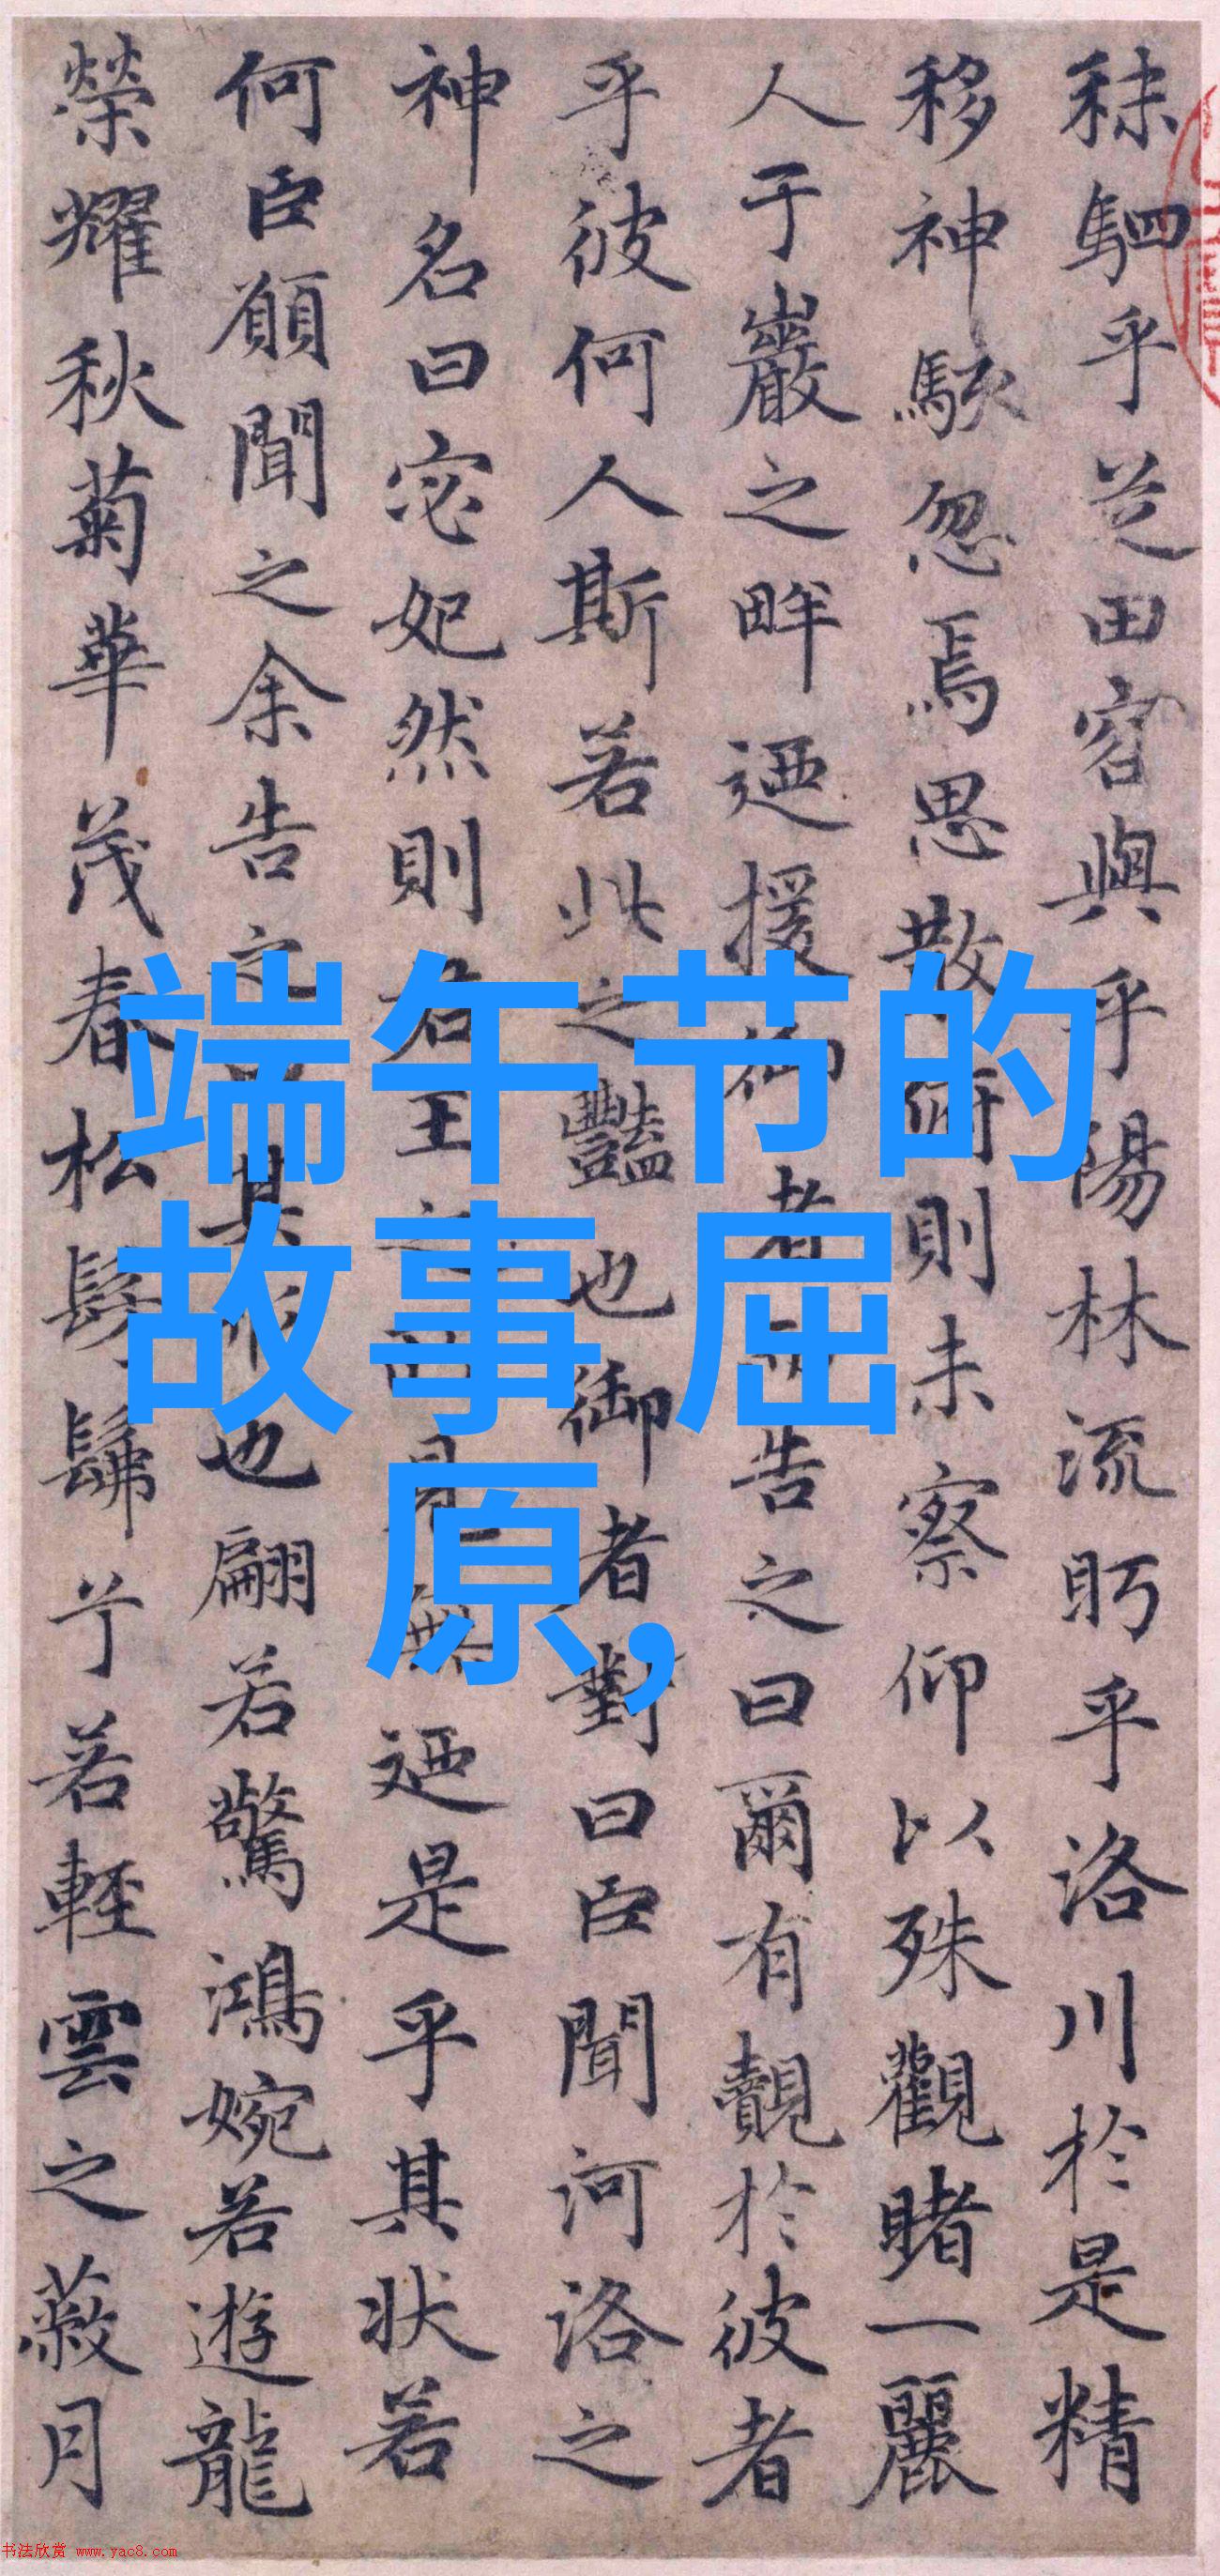 秣駟乎芝田容與乎陽林流眄乎洛川於是精
移神駭忽焉思散俯則未察仰以殊觀睹一麗
人于巖之畔迺援御者而告之曰爾有覿於彼者
乎彼何人斯若此之豔也御者對曰臣聞河洛之
神名曰宓妃然則君王之所見無迺是乎其狀若
何臣願聞之余告之曰其形也翩若驚鴻婉若遊龍
榮耀秋菊華茂春松髣髴兮若輕雲之蔽月
端午节的
故事 屈
原,
书法欣赏 www.yac8.com